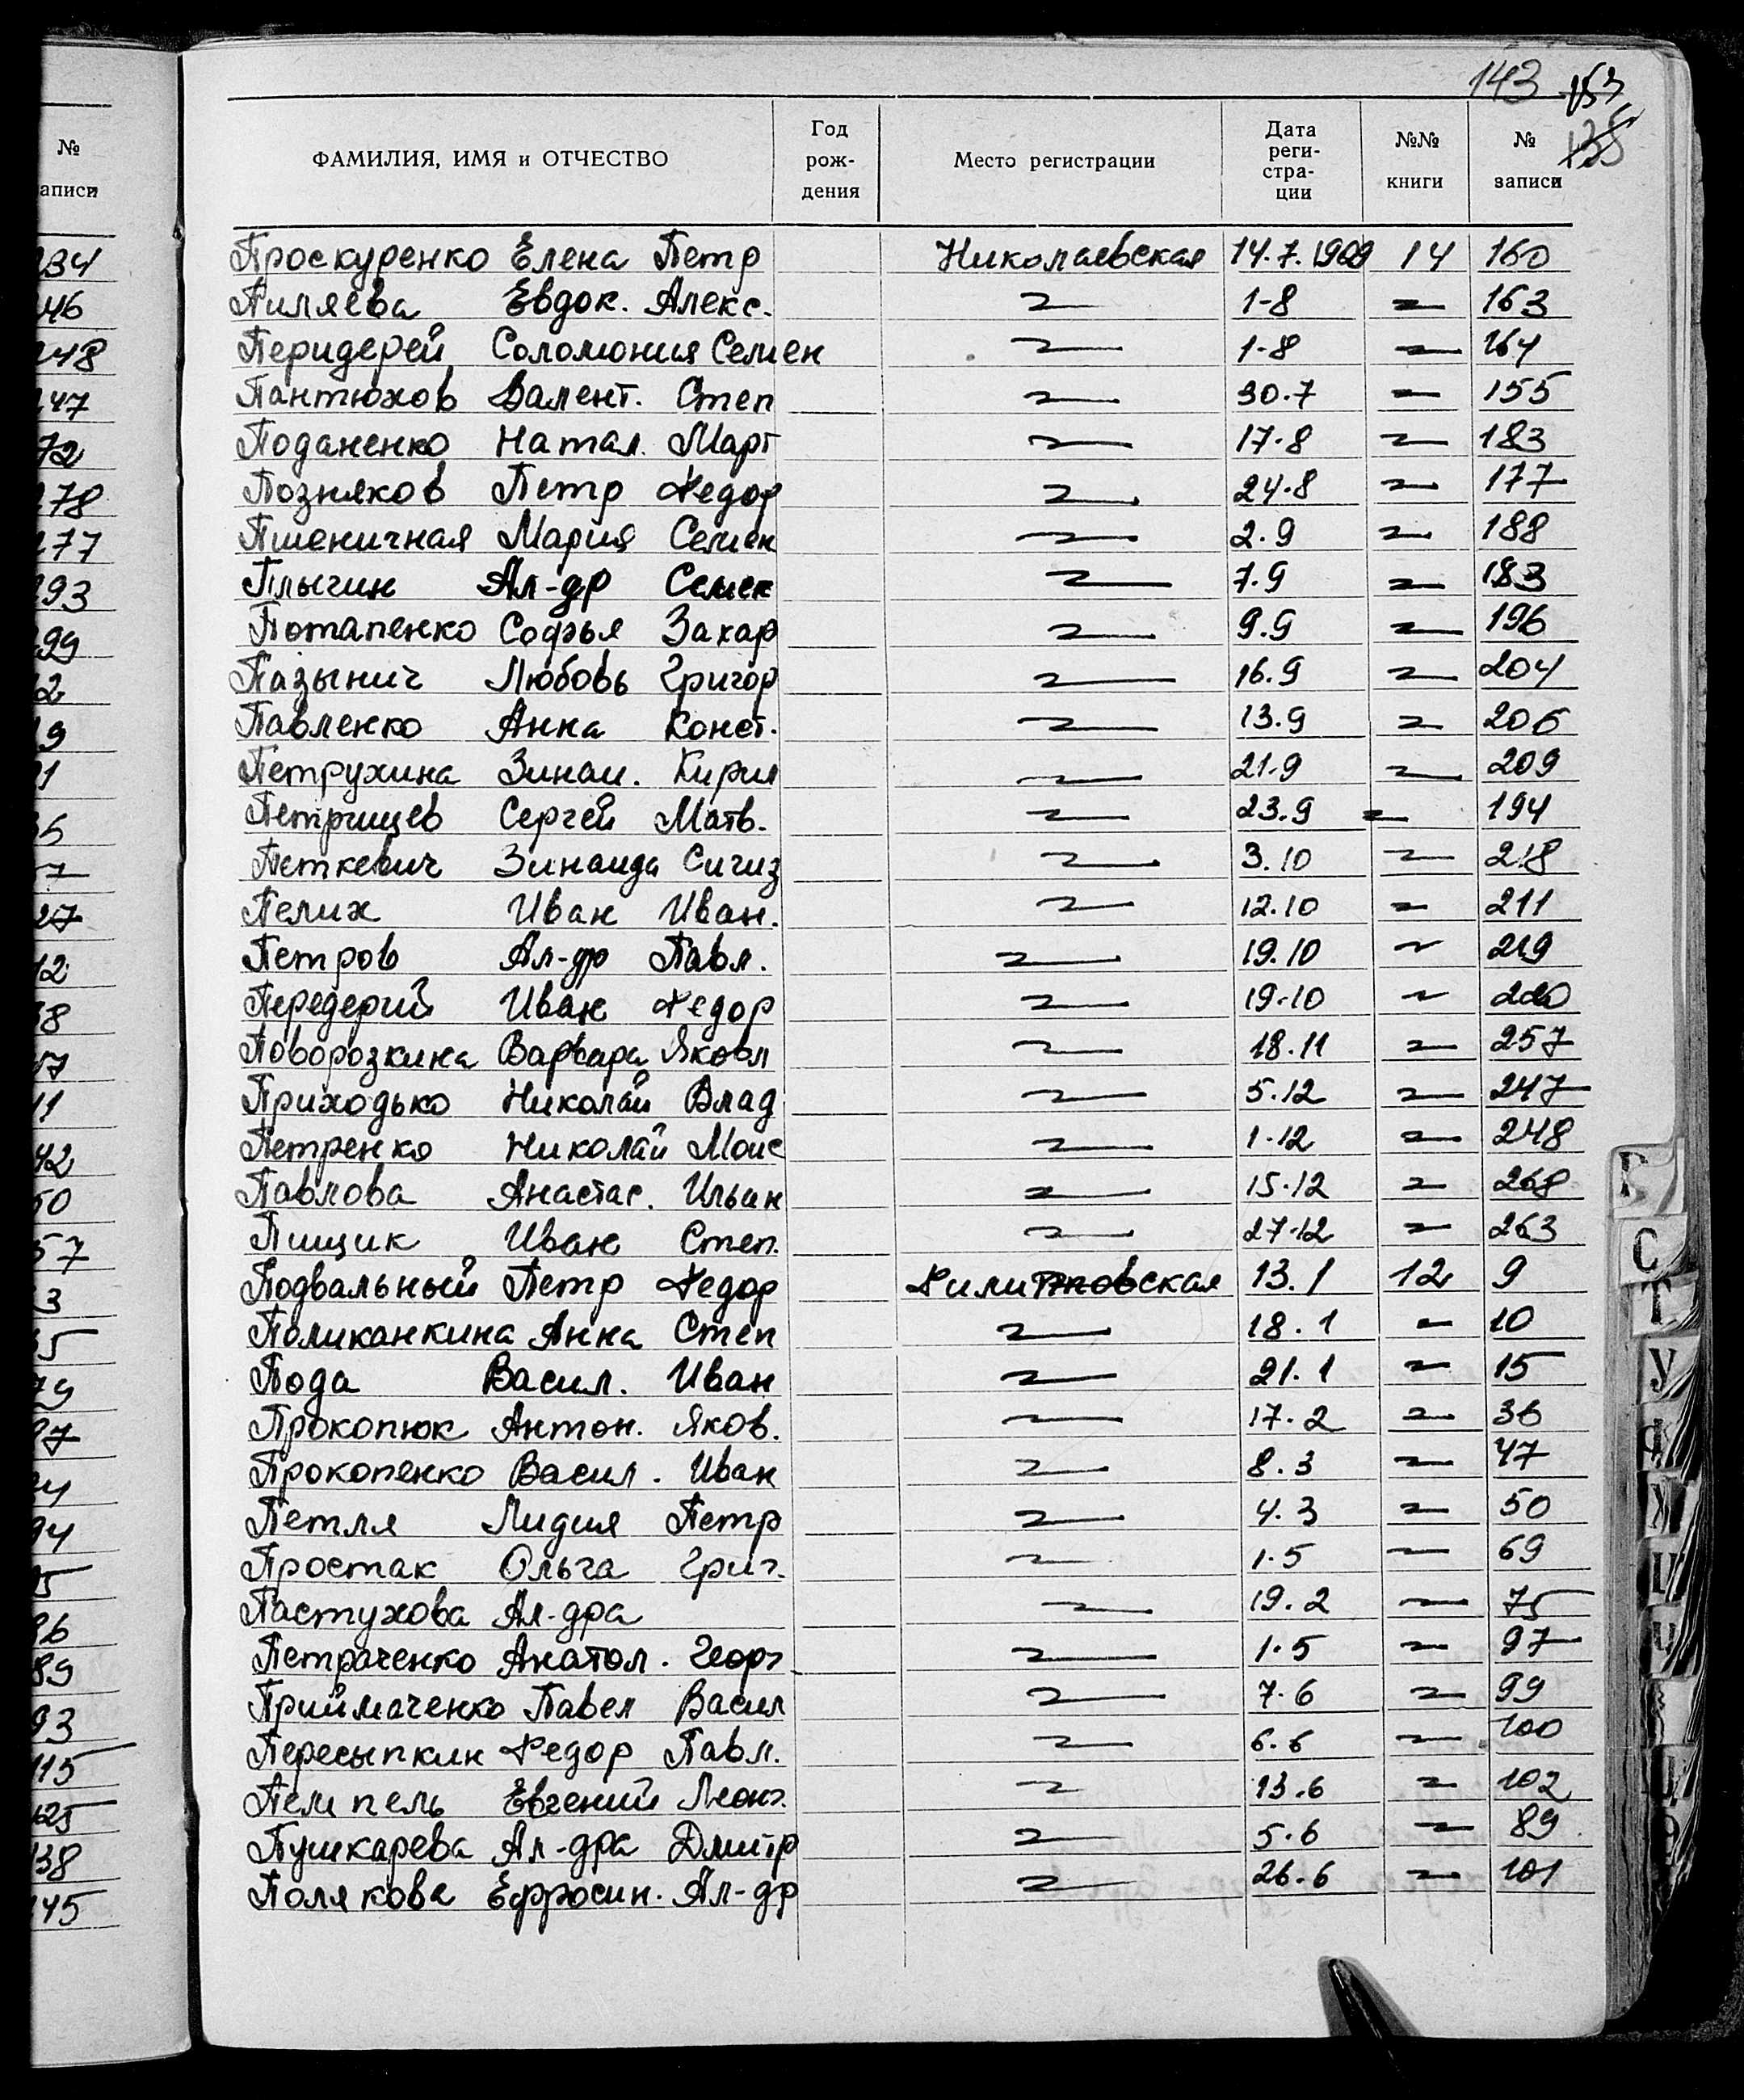 143 153
135
№
записи
ФАМИЛИЯ, ИМЯ и ОТЧЕСТВО
Год рож- дения
Место регистрации
Дата реги- стра- ции
№№ книги
№ записи
Проскуренко Елена Петр Николаевская 14.7.1909 14 160
Пиляева Евдок. Алекс. 〃 1-8 〃 163
Перидерей Соломония Семен 〃 1-8 〃 164
Пантюхов Валент. Степ 〃 30.7 〃 155
Поданенко Натал. Март 〃 17.8 〃 183
Позняков Петр Федор 〃 24.8 〃 177
Пшеничная Мария Семен 〃 2.9 〃 188
Плыгин Ал-др Семен 〃 7.9 〃 183
Потапенко Софья Захар 〃 9.9 〃 196
Пазынич Любовь Григор 〃 16.9 〃 204
Павленко Анна Конст. 〃 13.9 〃 206
Петрухина Зинаи. Кирил 〃 21.9 〃 209
Петрищев Сергей Матв. 〃 23.9 〃 194
Петкевич Зинаида Сигиз 〃 3.10 〃 218
Пелих Иван Иван. 〃 12.10 〃 211
Петров Ал-др Павл. 〃 19.10 〃 219
Передерий Иван Федор 〃 19.10 〃 220
Поворозкина Варвара Яковл 〃 18.11 〃 257
Приходько Николай Влад 〃 5.12 〃 247
Петренко Николай Моис 〃 1.12 〃 248
Павлова Анастас. Ильин 〃 15.12 〃 268
Пищик Иван Степ. 〃 27.12 〃 263
Подвальный Петр Федор Филипповская 13.1 12 9
Поликанкина Анна Степ 〃 18.1 〃 10
Пода Васил. Иван 〃 21.1 〃 15
Прокопюк Антон. Яков. 〃 17.2 〃 36
Прокопенко Васил. Иван 〃 8.3 〃 47
Петля Лидия Петр 〃 4.3 〃 50
Простак Ольга Григ. 〃 1.5 〃 69
Пастухова Ал-дра 〃 19.2 〃 75
Петраченко Анатол. Георг 〃 1.5 〃 97
Приймаченко Павел Васил 〃 7.6 〃 99
Пересыпкин Федор Павл. 〃 6.6 〃 100
Пемпель Евгений Леон. 〃 13.6 〃 102
Пушкарева Ал-дра Дмитр 〃 5.6 〃 89
Полякова Ефросин. Ал-др 〃 26.6 〃 101
Р
С
Т
У